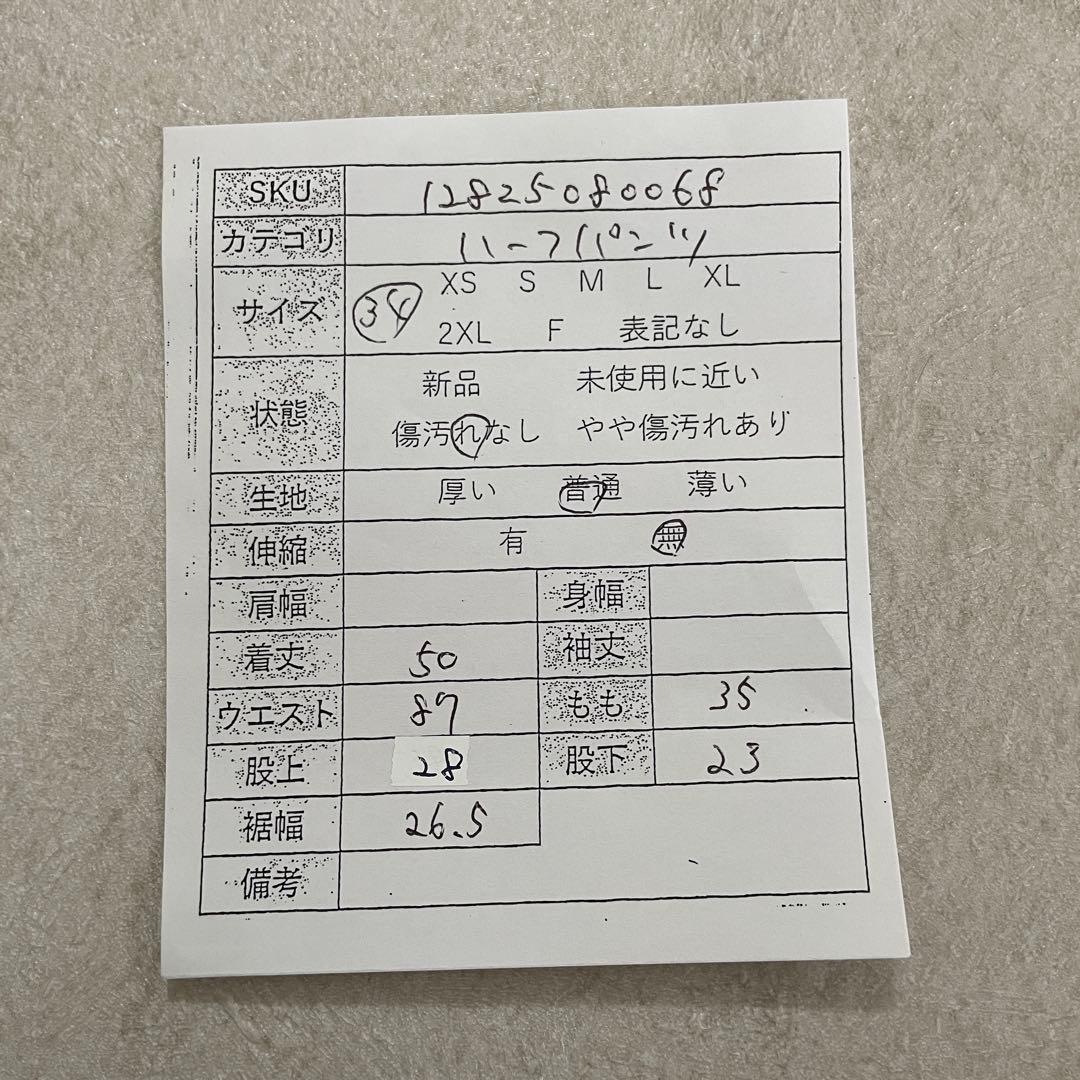 SKU 12825080068
カテゴリ ハーフパンツ
サイズ 34 XS S M L XL
2XL F 表記なし
状態 新品 未使用に近い
傷汚れなし やや傷汚れあり
生地 厚い 普通 薄い
伸縮 有 無
肩幅 身幅
着丈 50 袖丈
ウエスト 87 もも 35
股上 28 股下 23
裾幅 26.5
備考